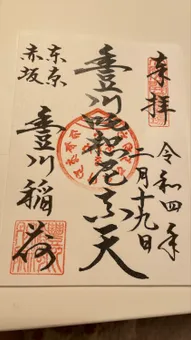 奉拝
令和四年
二月十九日
豊川吒枳尼眞天
東京
赤坂
豊川稲荷